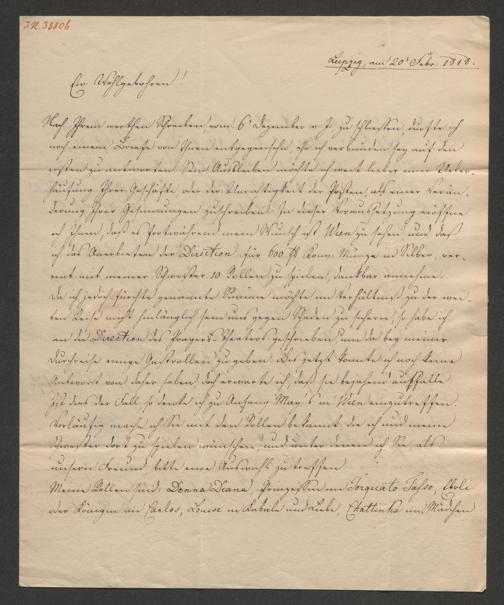 I.N. 38806
Leipzig, am 20t Febr. 1818.
Ew. Wohlgebohren!
Nach Ihrem werthen Schreiben vom 6t Dezember v. J. zu schließen, durfte ich
noch einem Briefe von Ihnen entgegensehn, ehe ich verbunden sey auf den
ersten zu antworten. Sein Ausbleiben möchte ich weit lieber einer Ueber-
häufung Ihrer Geschäfte, oder der Unrichtigkeit der Posten, als einer Verän-
derung Ihrer Gesinnungen zuschreiben. In dieser Voraussetzung eröffne
ich Ihnen, daß es fortwährend mein Wunsch ist Wien zu sehen und daß
ich das Anerbieten der Direction für 600 fl Conv. Münze in Silber, ver-
eint mit meiner Schwester 10 Rollen zu spielen, dankbar annehme.
Da ich jedoch fürchte genannte Summe möchte im Verhältniß zu der wei-
ten Reise nicht hinlänglich sein uns gegen Schaden zu sichern, so habe ich
an die Direction des Prager Theaters geschrieben, um da bey meiner
Durchreise einige Gastrollen zu geben. Bis jetzt konnte ich noch keine
Antwort von daher haben, doch erwarte ich, daß sie bejahend ausfalle
Ist das der Fall, so denke ich zu Anfang May in Wien einzutreffen.
Vorläufig mache ich Sie mit den Rollen bekannt die ich und meine
Schwester dort zu spielen wünschen, und unter denen ich Sie, als
unsern Freund, bitte eine Auswahl zu treffen
Meine Rollen sind: Donna Diana, Prinzessin in Torquato Tasso, Eboli
oder Königin in Carlos, Louise in Kabale und Liebe, Chatinka im Mädchen